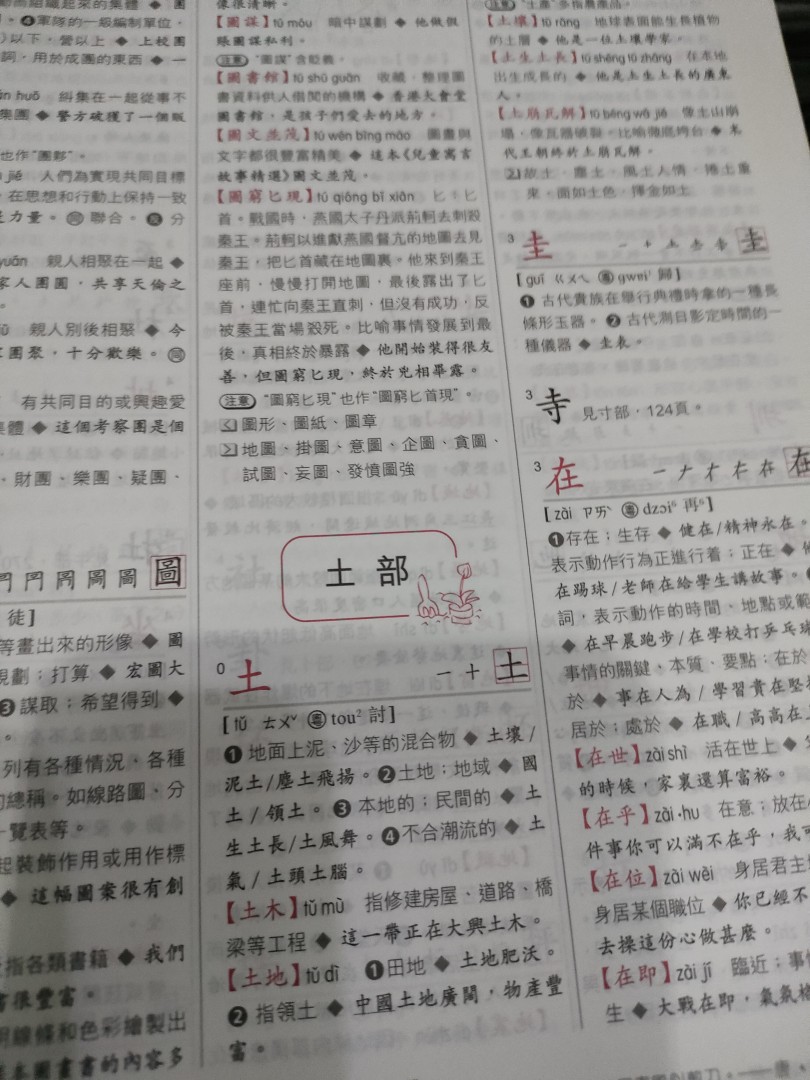 動而組織起來的集體 ◆ 團
。❹軍隊的一級編制單位，
)以下，營以上 ◆ 上校團
詞，用於成團的東西 ◆ 一
huǒ 糾集在一起從事不
集團 ◆ 警方破獲了一個販
也作“團夥”。
jié 人們為實現共同目標
，在思想和行動上保持一致
是力量。㊂聯合。分
yuán 親人相聚在一起 ◆
家人團圓，共享天倫之
親人別後相聚 ◆ 今
團聚，十分歡樂。同
有共同目的或興趣愛
集體 ◆ 這個考察團是個
、財團、樂團、疑團、
圖
徒]
等畫出來的形像 ◆ 圖
規劃；打算 ◆ 宏圖大
❸謀取；希望得到 ◆
列有各種情況、各種
的總稱。如線路圖、分
一覽表等。
起裝飾作用或用作標
◆ 這幅圖案很有創
指各類書籍 ◆ 我們
書很豐富。
明線條和色彩繪製出
本圖畫書的內容多
像很清晰。
【圖謀】tú móu 暗中謀劃 ◆ 他做假
賬圖謀私利。
注意 “圖謀”含貶義。
【圖書館】tú shū guǎn 收藏、整理圖
書資料供人借閱的機構 ◆ 香港大會堂
圖書館，是孩子們愛去的地方。
【圖文並茂】tú wén bìng mào 圖畫與
文字都很豐富精美 ◆ 這本《兒童寓言
故事精選》圖文並茂。
【圖窮匕現】tú qióng bǐ xiàn 匕：匕
首。戰國時，燕國太子丹派荊軻去刺殺
秦王。荊軻以進獻燕國督亢的地圖去見
秦王，把匕首藏在地圖裏。他來到秦王
座前，慢慢打開地圖，最後露出了匕
首，連忙向秦王直刺，但沒有成功，反
被秦王當場殺死。比喻事情發展到最
後，真相終於暴露 ◆ 他開始裝得很友
善，但圖窮匕現，終於兇相畢露。
注意 “圖窮匕現”也作“圖窮匕首現”。
圖形、圖紙、圖章
地圖、掛圖、意圖、企圖、貪圖、
試圖、妄圖、發憤圖強
土部
0 土 一 十 土
[tǔ ㄊㄨˇ 粵 tou² 討]
❶ 地面上泥、沙等的混合物 ◆ 土壤/
泥土/塵土飛揚。❷土地；地域 ◆ 國
土/領土。❸ 本地的；民間的 ◆ 土
生土長/土風舞。❹不合潮流的 ◆ 土
氣/土頭土腦。
【土木】tǔ mù 指修建房屋、道路、橋
梁等工程 ◆ 這一帶正在大興土木。
【土地】tǔ dì ❶田地 ◆ 土地肥沃。
❷ 指領土 ◆ 中國土地廣闊，物產豐
富。
注意 “土產”多指農產品。
【土壤】tǔ rǎng 地球表面能生長植物
的土層 ◆ 他是一位土壤學家。
【土生土長】tǔ shēng tǔ zhǎng 在本地
出生成長的 ◆ 他是土生土長的廣東
人。
【土崩瓦解】tǔ bēng wǎ jiě 像土山崩
塌，像瓦器破裂。比喻徹底垮台 ◆ 末
代王朝終於土崩瓦解。
故土、塵土、風土人情、捲土重
來、面如土色、揮金如土
3 圭 圭
[guī ㄍㄨㄟ 粵 gwei¹ 歸]
❶ 古代貴族在舉行典禮時拿的一種長
條形玉器。❷ 古代測日影定時間的一
種儀器 ◆ 圭表。
3 寺 見寸部，124頁。
3 在 在
[zài ㄗㄞˋ 粵 dzɔi⁶ 再⁶]
❶存在；生存 ◆ 健在/精神永在。
表示動作行為正進行着；正在 ◆
在踢球/老師在給學生講故事。
詞，表示動作的時間、地點或範
◆ 在早晨跑步/在學校打乒乓球
事情的關鍵、本質、要點：在於
於 ◆ 事在人為/學習貴在堅
居於；處於 ◆ 在職/高高在上
【在世】zài shì 活在世上 ◆
的時候，家裏還算富裕。
【在乎】zài·hu 在意；放在心
件事你可以滿不在乎，我可
【在位】zài wèi 身居君主
身居某個職位 ◆ 你已經不
去操這份心做甚麼。
【在即】zài jí 臨近；事情
生 ◆ 大戰在即，氣氛